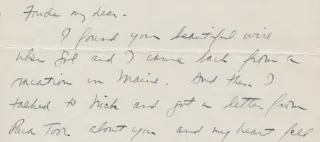 my dear -
I found your beautiful wire
when and I came back from a
vacation in Maine. And then I
talked to Nick and got a letter from
about you and my heart fell